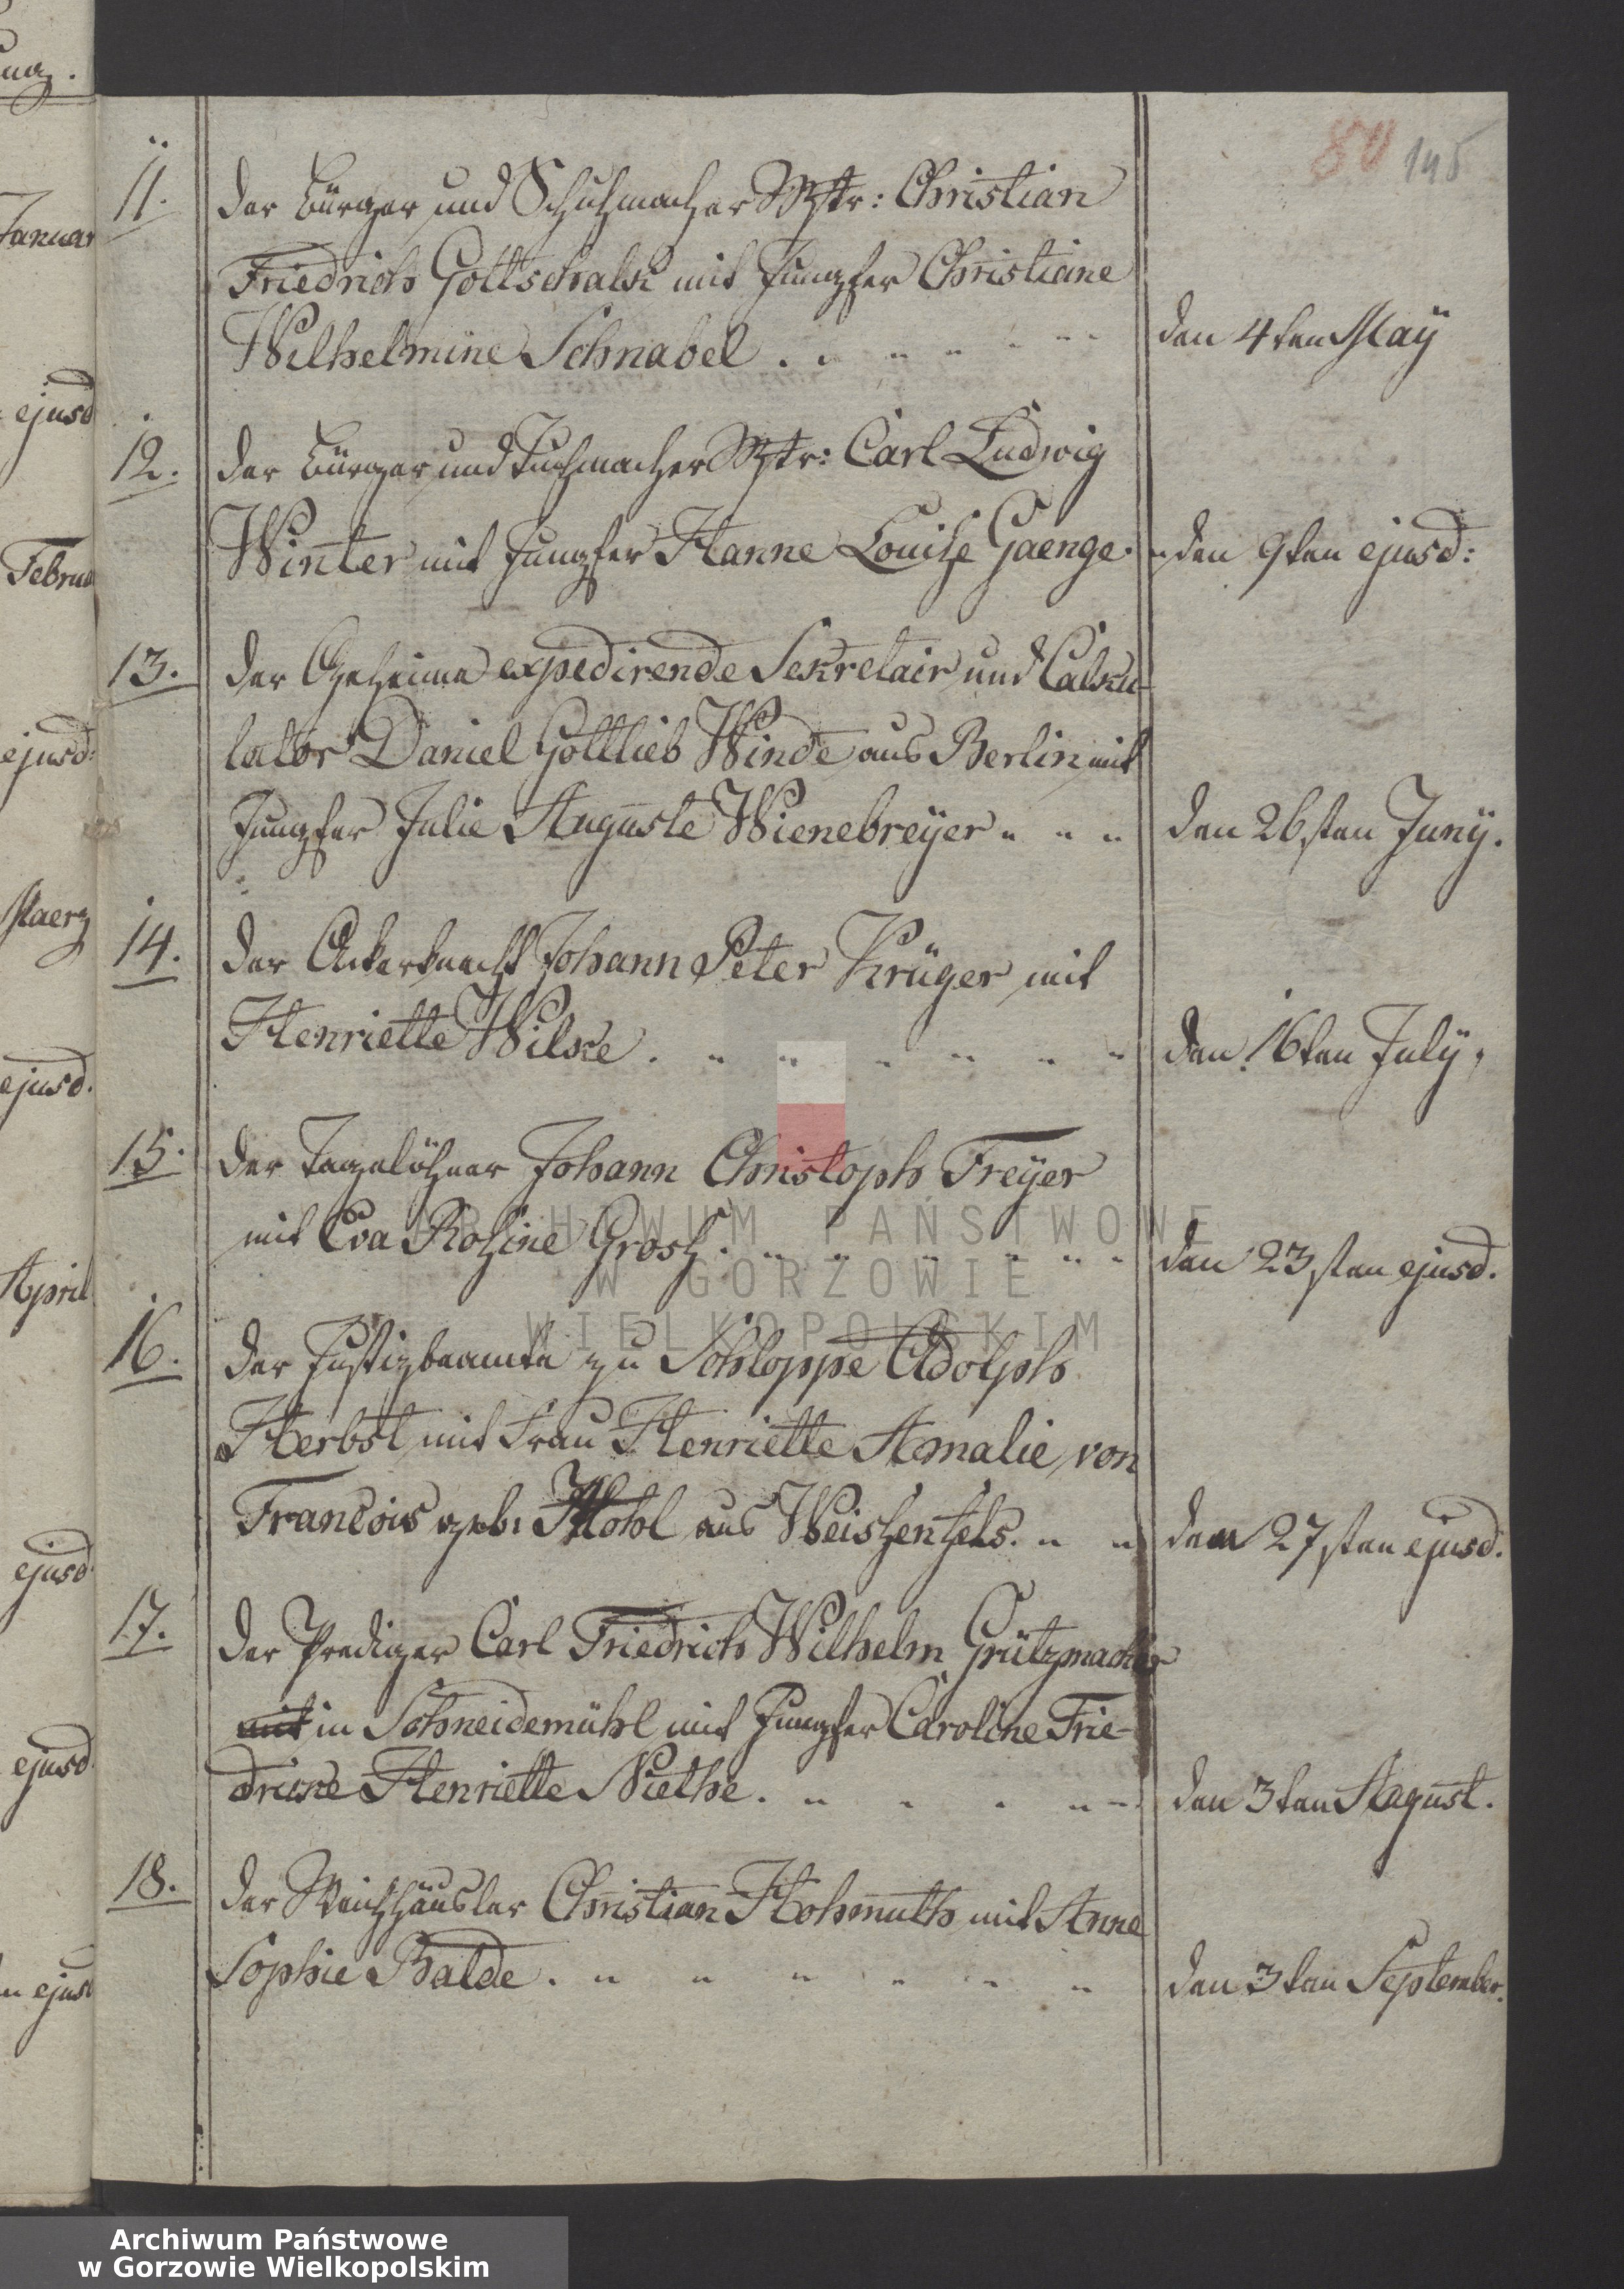 80 145
11. Der Bürger und Schuhmacher Mstr: Christian
Friedrich Gottschalk mit Jungfer Christiane
Wilhelmine Schnabel . den 4ten May
12. Der Bürger und Tuchmacher Mstr: Carl Ludwig
Winter mit Jungfer Hanne Louise Gaenge. den 9ten ejusd:
13. Der Geheime expedirende Sekretair und Calku-
lator Daniel Gottlieb Winde aus Berlin mit
Jungfer Julie Auguste Wienebreyer den 26sten Juny.
14. Der Ackerknecht Johann Peter Krüger mit
Henriette Wilke . den 16ten July.
15. Der Tagelöhner Johann Christoph Freyer
mit Eva Rosine Grosh . den 23sten ejusd.
16. Der Justizbeamte zu Schloppe Adolph
Herbst mit Frau Henriette Amalie von
Francois geb: aus Weishenfels. den 27sten ejusd.
17. Der Prediger Carl Friedrich Wilhelm Grützmacher
mit in Schneidemühl mit Jungfer Caroline Frie-
dricke Henriette Niethe . den 3ten August.
18. Der Christian Hohmuth mit Anne
Sophie Balde . den 3ten September.
Januar
ejusd
Februa
ejusd:
Maerz
ejusd.
April
ejusd
ejusd
ejusd
ARCHIWUM PAŃSTWOWE
W GORZOWIE
WIELKOPOLSKIM
Archiwum Państwowe
w Gorzowie Wielkopolskim